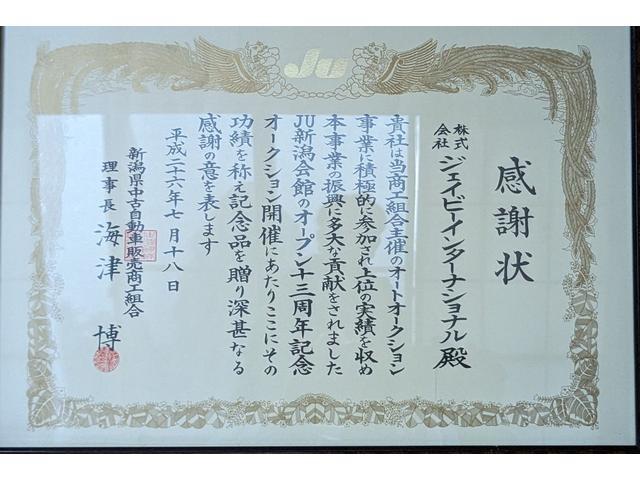 JU
感謝状
株式会社 ジェイビーインターナショナル殿
貴社は当商工組合主催のオートオークション
事業に積極的に参加され上位の実績を収め
本事業の振興に多大な貢献をされました
JU新潟会館のオープン十三周年記念
オークション開催にあたりここにその
功績を称え記念品を贈り深甚なる
感謝の意を表します
平成二十六年七月十八日
新潟県中古自動車販売商工組合
理事長 海津 博